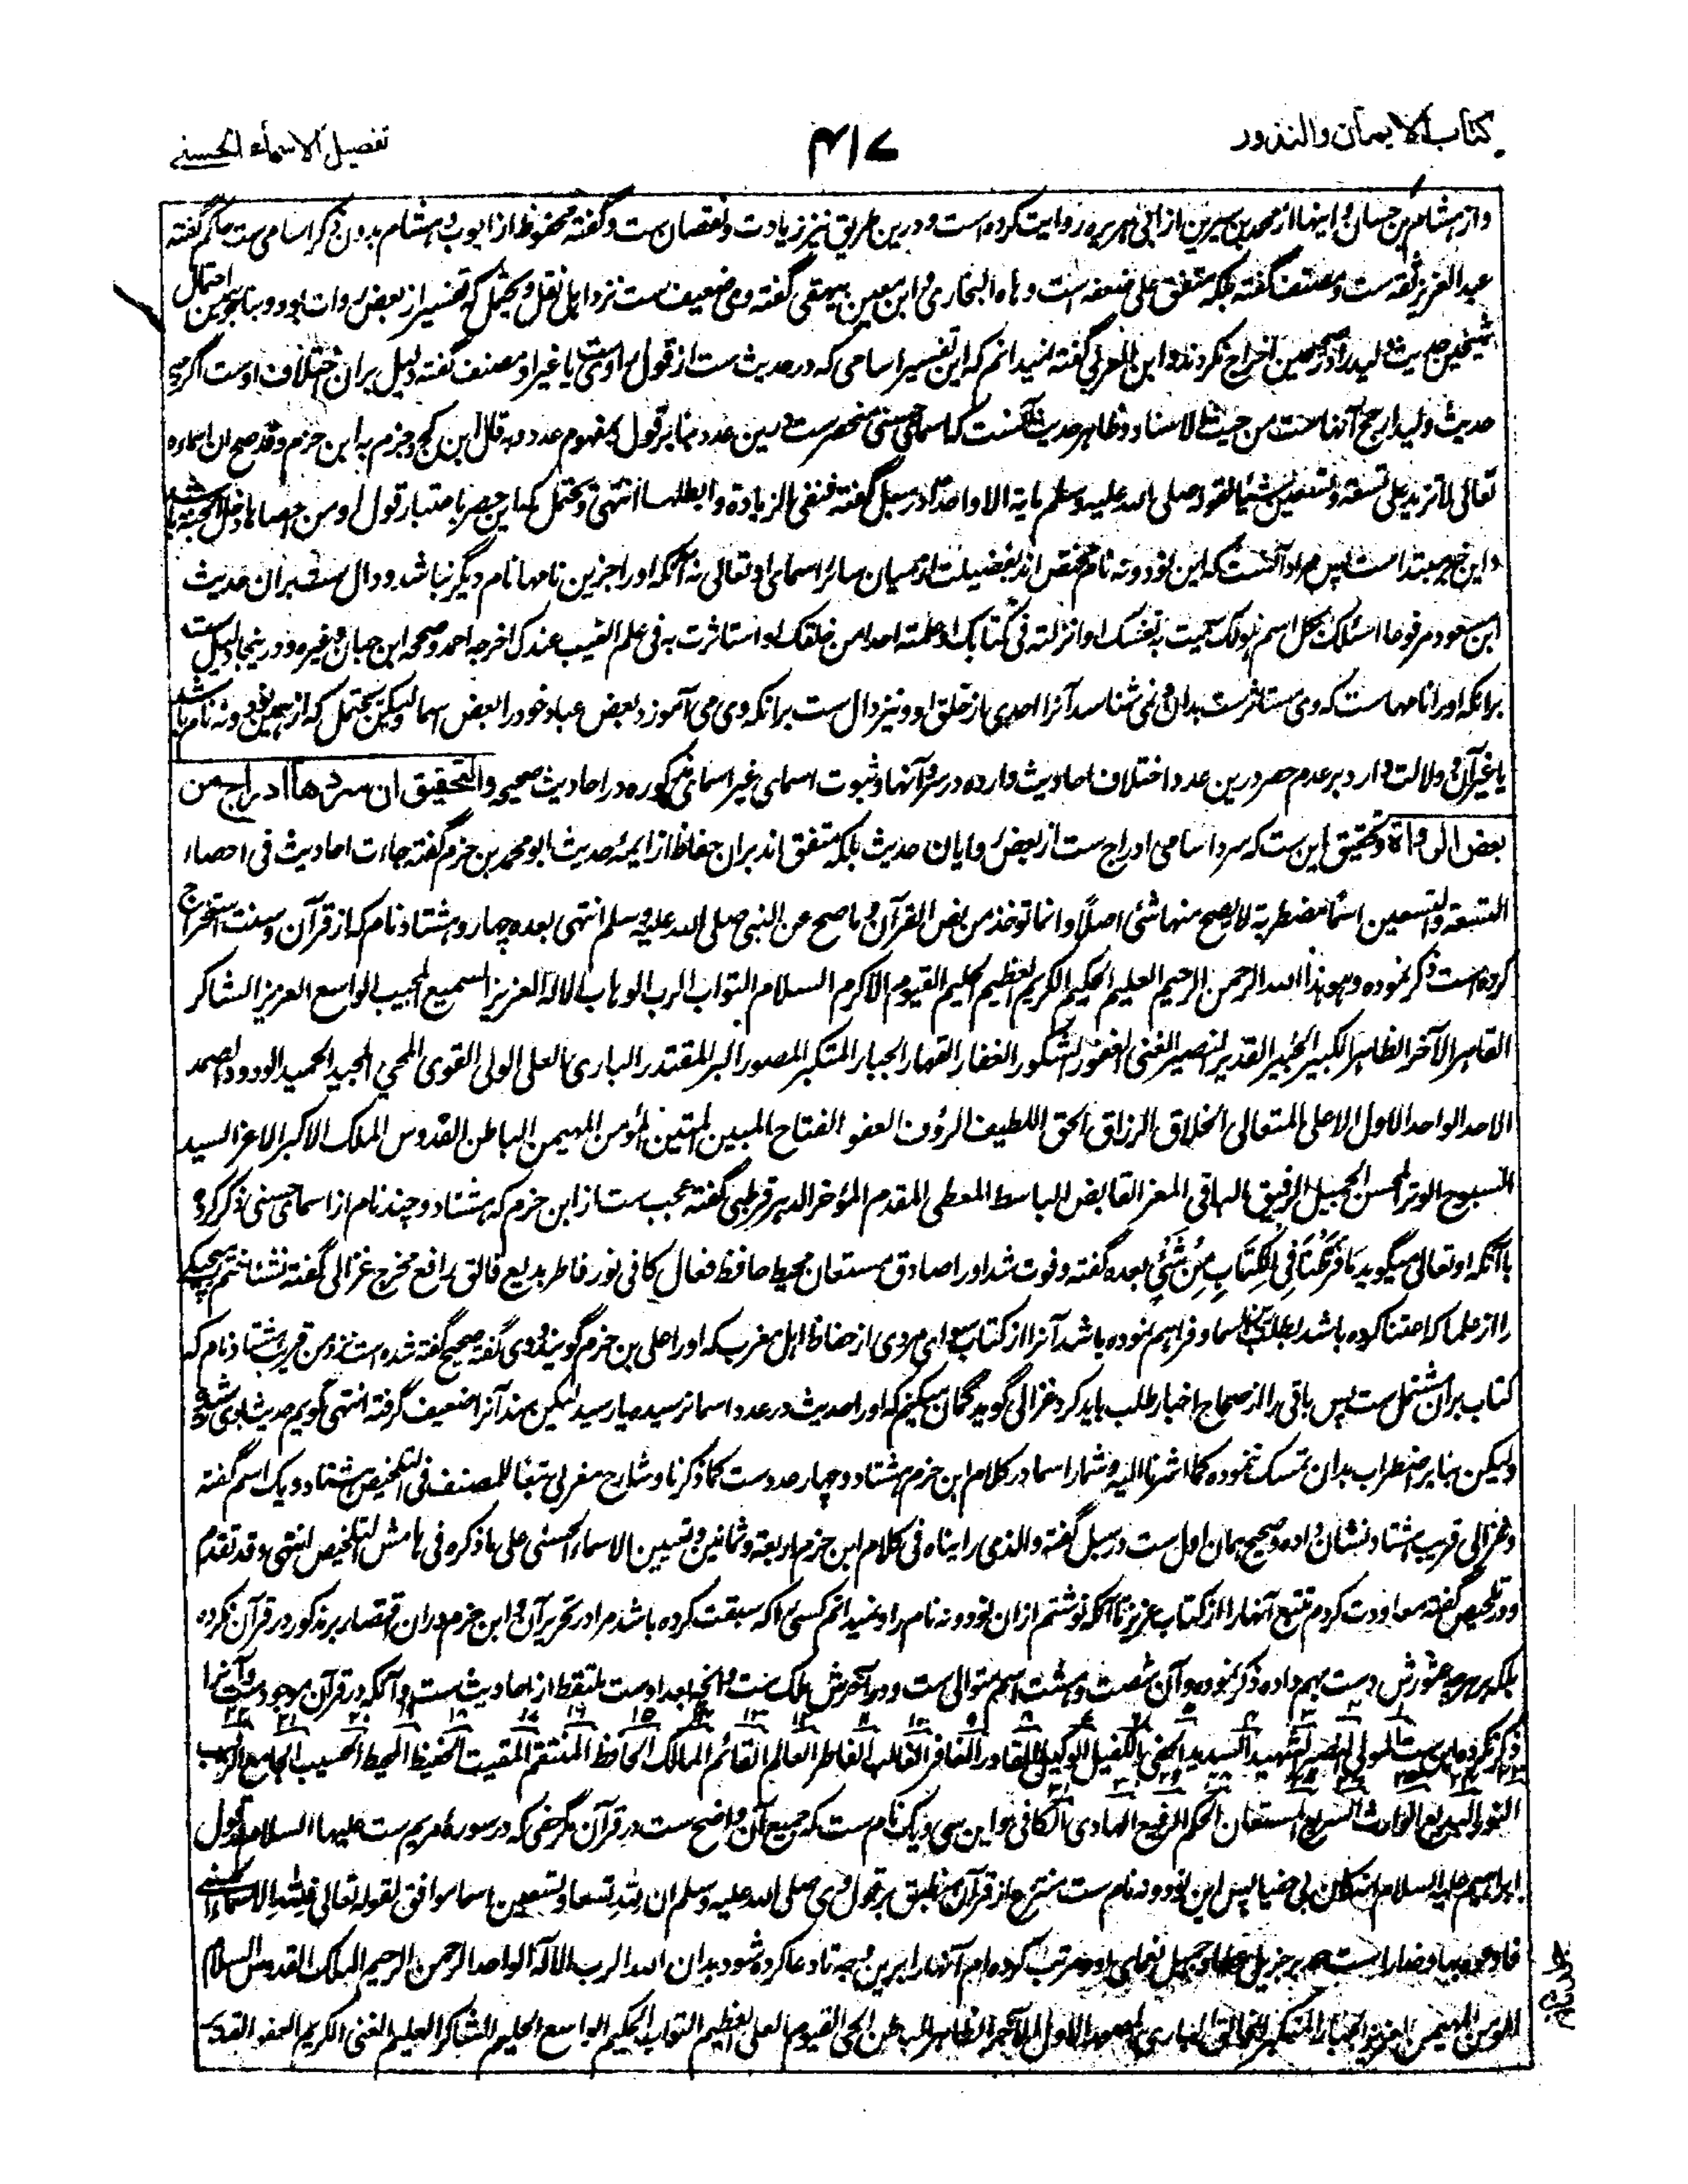 کتاب الایمان والنذور
۴۱۷
تفصیل الاسماء الحسنی
واز هشام بن حسان و اینها از محمد بن سیرین از ابی هریره روایت کرده است و درین طریق نیز زیادت و نقصان ست و گفته محفوظ از ایوب و هشام بدون ذکر اسامی ست حاکم گفته
عبد العزیز ثقه ست و مصنف گفته بلکه متفق علی ضعفه است وهاه البخاری و ابن معین بیهقی گفته وی ضعیف ست نزد اهل نقل و یحتمل که تفسیر از بعض روات بود و بنا بر همین احتمال
شیخین حدیث ولید را در صحیحین اخراج نکردند و ابن العربی گفته نمیدانم که این تفسیر اسامی که در حدیث ست از قول راوی ست یا غیر او مصنف گفته دلیل بر آن اختلاف اوست اگرچه
حدیث ولید ارجح آنهاست من حیث الاسناد و ظاهر حدیث آنست که اسمای حسنی منحصر ست درین عدد بنا بر قول بمفهوم عدد و به قال ابن کج و جزم به ابن حزم وقد صح ان اسماءه
تعالی لا تزید علی تسعة وتسعین شیئا لقوله صلی الله علیه وسلم مایة الا واحدا در سبل گفته فنفی الزیادة وابطلها انتهی و یحتمل که این حصر باعتبار قول او من احصاها دخل الجنة باشد
و این خبر مبتدا ست پس مراد آنست که این نود و نه نام مختص اند بفضیلت از میان سائر اسمای او تعالی نه آنکه او را جز این نامها نام دیگر نباشد و دال ست بر آن حدیث
ابن مسعود مرفوعا اسئلک بکل اسم هو لک سمیت به نفسک او انزلته فی کتابک او علمته احدا من خلقک او استاثرت به فی علم الغیب عندک اخرجه احمد وصححه ابن حبان وغیره و درینجا دلیل ست
برانکه او را نامهاست که وی مستاثر ست بدان و نمی شناسد آنرا احدی از خلق او و نیز دال ست برانکه وی می آموزد بعض عباد خود را بعض اسما ولیکن یحتمل که از همین نود و نه نام باشد
یا غیر آن و دلالت دارد بر عدم حصر درین عدد اختلاف احادیث وارده در سرد آنها و ثبوت اسمای غیر اسمای مذکوره در احادیث صحیح والتحقیق ان سردها ادراج من
بعض الرواة و تحقیق این ست که سرد اسامی ادراج ست از بعض راویان حدیث بلکه متفق اند بران حفاظ از ایمه حدیث ابو محمد بن حزم گفته جاءت احادیث فی احصاء
التسعة والتسعین اسما مضطربة لا یصح منها شئ اصلا وانما توخذ من نص القرآن وما صح عن النبی صلی الله علیه وسلم انتهی بعده چهار و هشتاد نام که از قرآن و سنت استخراج
کرده است ذکر نموده و هو هذا الله الرحمن الرحیم العلیم الحکیم الکریم العظیم الحلیم القیوم الاکرم السلام التواب الرب الوهاب الاله العزیز السمیع المجیب الواسع العزیز الشاکر
القاهر الآخر الظاهر الکبیر الخبیر القدیر البصیر الغنی الغفور الشکور الغفار القهار الجبار المتکبر المصور البر المقتدر الباری العلی الولی القوی المحی المجید الحمید الودود الصمد
الاحد الواحد الاول الاعلی المتعالی الخلاق الرزاق الحق اللطیف الرؤف العفو الفتاح المبین المتین المؤمن المهیمن الباطن القدوس الملک الاکبر الاعز السید
السبوح الوتر المحسن الجمیل الرفیق الباقی المعز القابض الباسط المعطی المقدم المؤخر الدهر قرطبی گفته عجب ست از ابن حزم که هشتاد و چند نام از اسمای حسنی ذکر کرده
با آنکه او تعالی میگوید مَا فَرَّطْنَا فِی الْکِتَابِ مِنْ شَیْءٍ بعده گفته و فوت شد او را صادق مستعان محیط حافظ فعال کافی نور فاطر بدیع فالق رافع مخرج غزالی گفته نشناختم هیچیک
را از علما که اعتنا کرده باشد بطلب اسما و فراهم نموده باشد آنرا از کتاب سوای مردی از حفاظ اهل مغرب که او را علی بن حزم گویند وی گفته صحیح گفته شده است نزد من قریب هشتاد نام که
کتاب بران مشتمل ست پس باقی را از صحاح اخبار طلب باید کرد غزالی گوید گمان میکنم که او را حدیث در عدد اسما نرسیده یا رسید لیکن سند آنرا ضعیف گرفته انتهی گویم حدیث او را رسیده
ولیکن بنا بر اضطراب بدان تمسک ننموده کما اشرنا الیه و شمار اسما در کلام ابن حزم هشتاد و چهار عدد ست کما ذکرنا و شارح مغربی تبعا للمصنف فی التلخیص هشتاد و یک اسم گفته
و غزالی قریب هشتاد نشان داده و صحیح همان اول ست در سبل گفته والذی رایناه فی کلام ابن حزم اربعة وثمانین وتسین الاسماء الحسنی علی ما ذکره فی هامش التلخیص انتهی وقد تقدم
و در تلخیص گفته معاودت کردم تتبع آنها را از کتاب عزیز تا آنکه نوشتم ازان نود و نه نام را و نمیدانم کسی را که سبقت کرده باشد مرا در تحریر آن و ابن حزم دران اقتصار بر مذکور در قرآن نکرده
بلکه هرچه عثورش دست بهم داده ذکر نموده و آن شصت و هشت اسم متوالی ست و در آخرش ملک ست و انچه بعد اوست ملتقط از احادیث ست و آنکه در قرآن موجود ست و آنرا
ذکر نکرده این ست المولی النصیر الشهید الشدید الحفی الکفیل الوکیل القادر الغافر الغالب الفاطر العالم القائم المالک الحافظ المنتقم المقیت الحفیظ المحیط الحسیب الجامع الرقیب
النور البدیع الوارث السریع المستعان الحکم الرفیع الهادی الکافی و این سی و یک نام ست که جمیع آن واضح ست در قرآن مگر حفی که در سورهٔ مریم ست علیها السلام بقول
ابراهیم علیه السلام انه کان بی حفیا پس این نود و نه نام ست منتزع از قرآن منطبق بر قول وی صلی الله علیه وسلم ان لله تسعا وتسعین اسما موافق لقوله تعالی ولله الاسماء الحسنی
فادعوه بها و خدا راست حمد بر جزیل عطا و جمیل نعمای او و مرتب کرده ام آنها را برین وجه تا دعا کرده شود بدان الله الرب الاله الواحد الرحمن الرحیم الملک القدوس السلام
المؤمن المهیمن العزیز الجبار المتکبر الخالق الباری المصور الاول الآخر الظاهر الباطن الحی القیوم العلی العظیم التواب الحکیم الواسع الحلیم الشاکر العلیم الغنی الکریم العفو القدیر